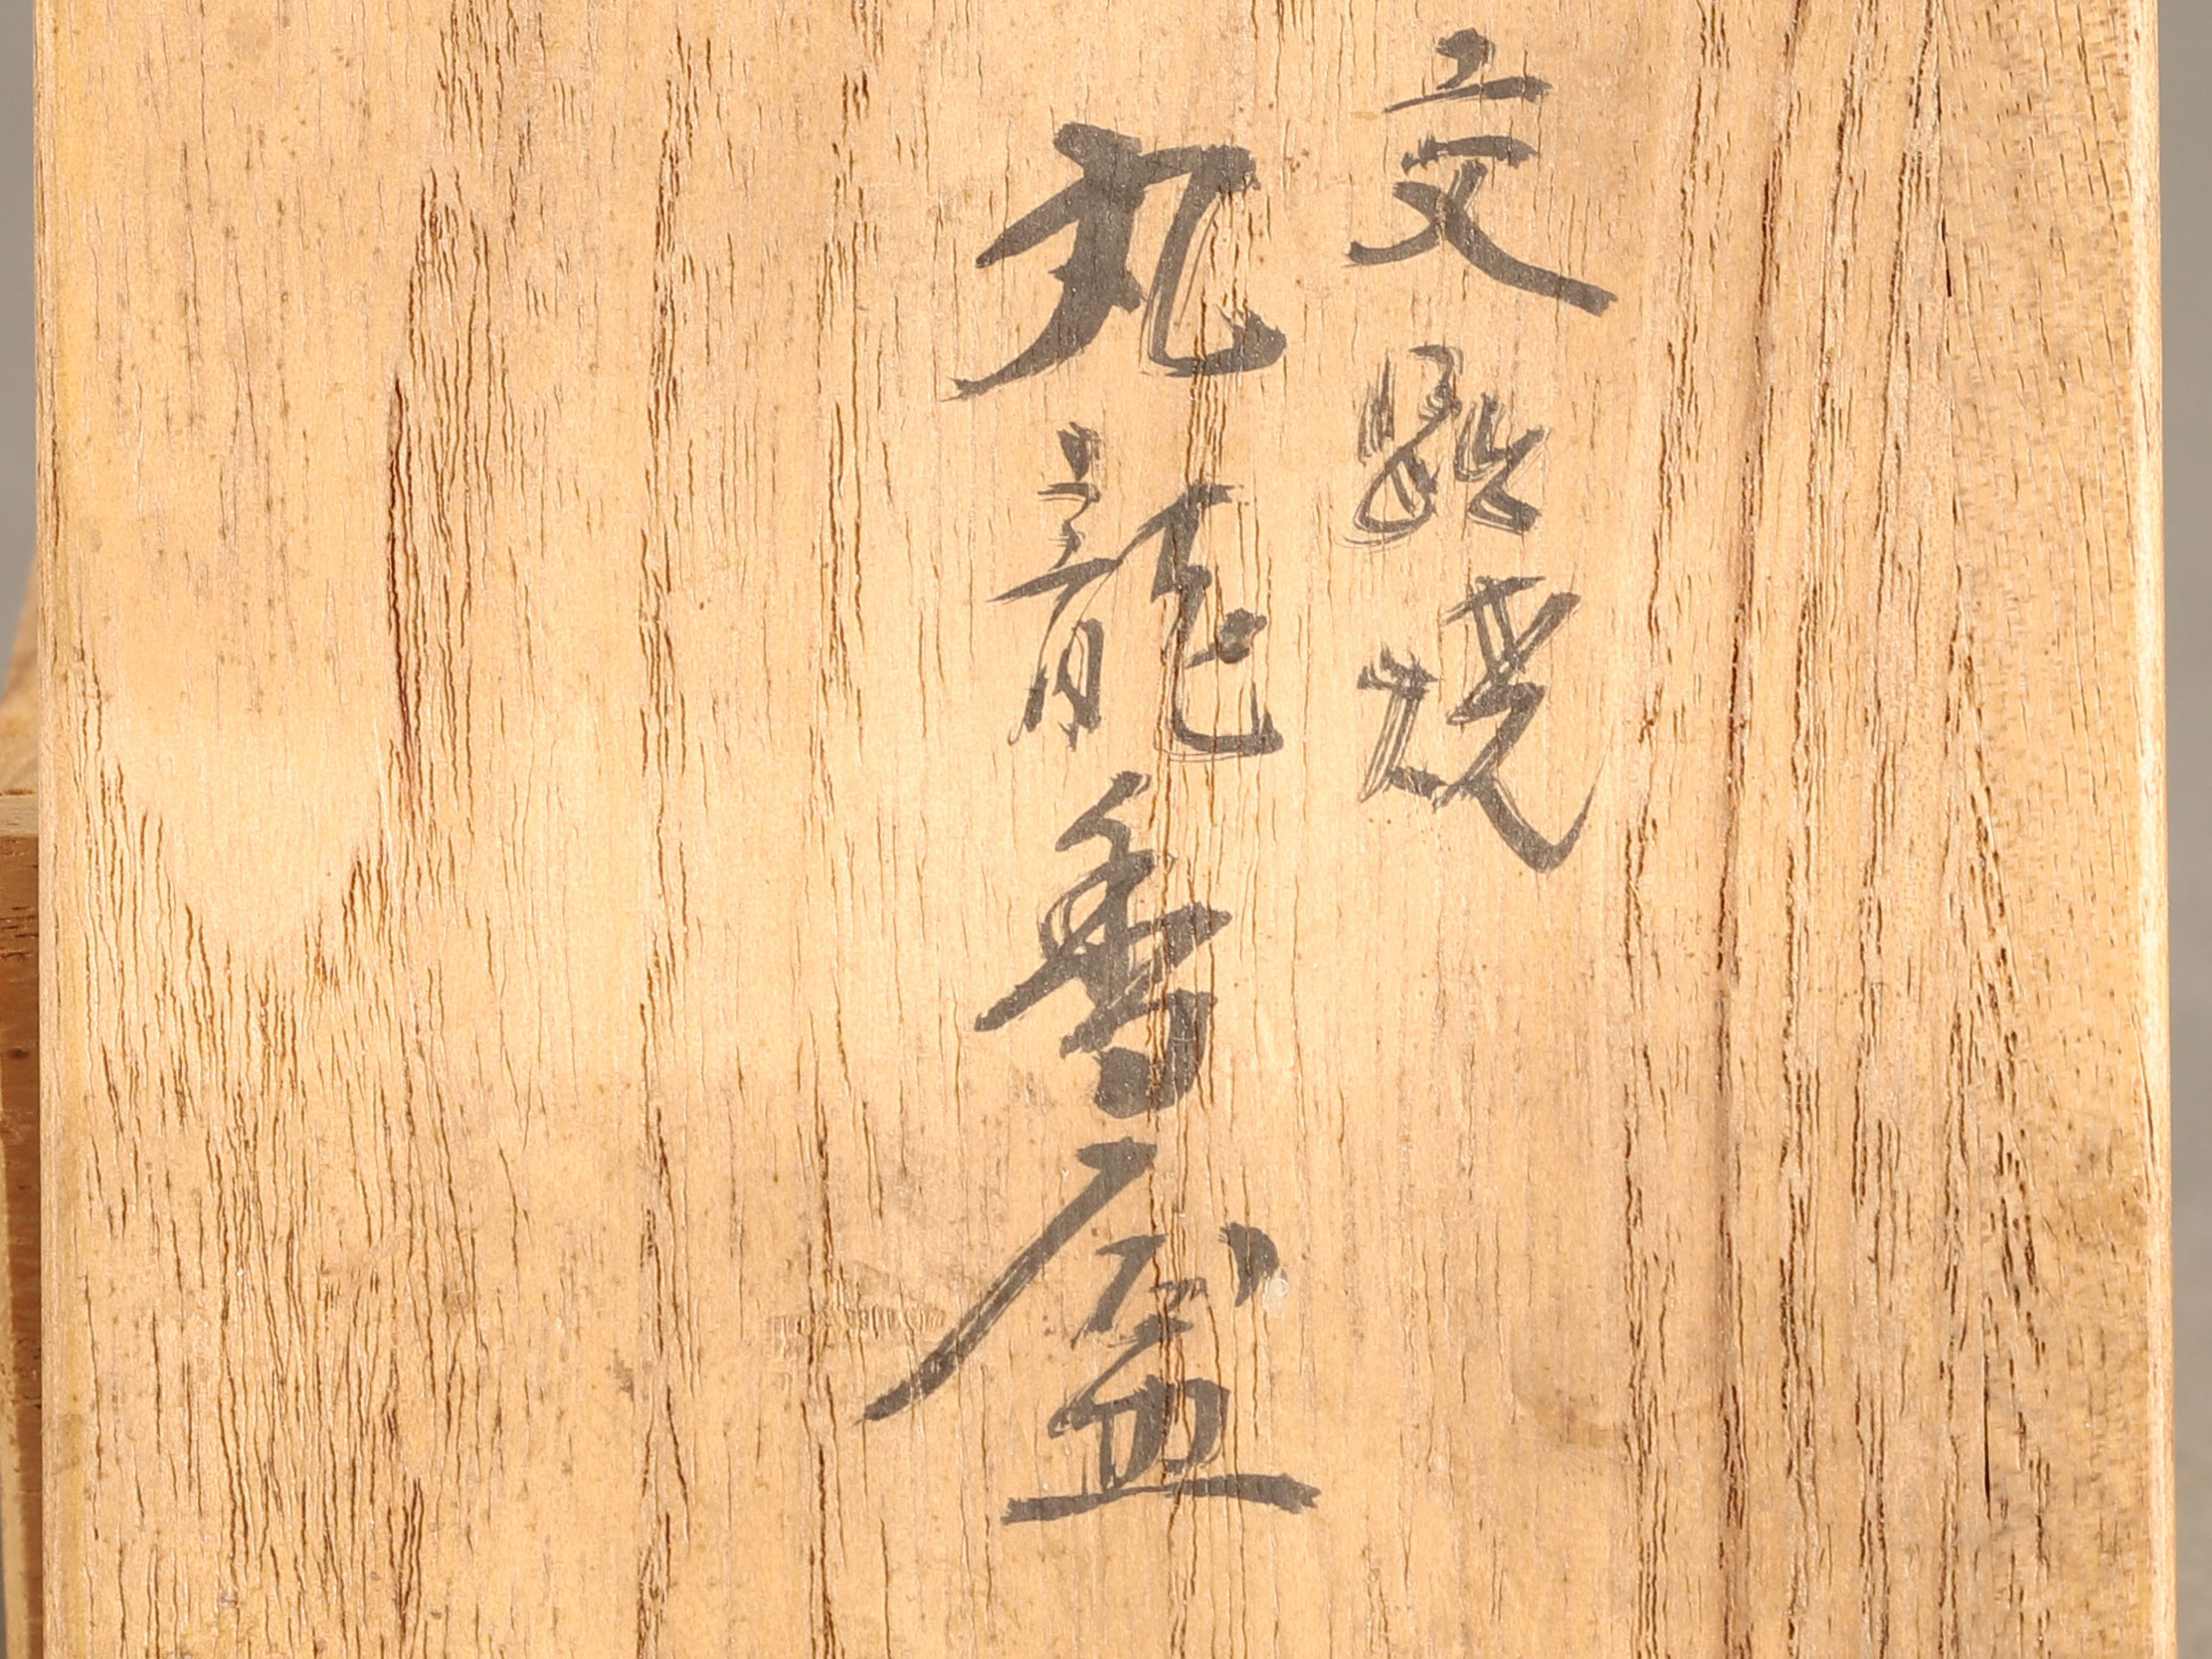 交趾焼
丸龍香盒